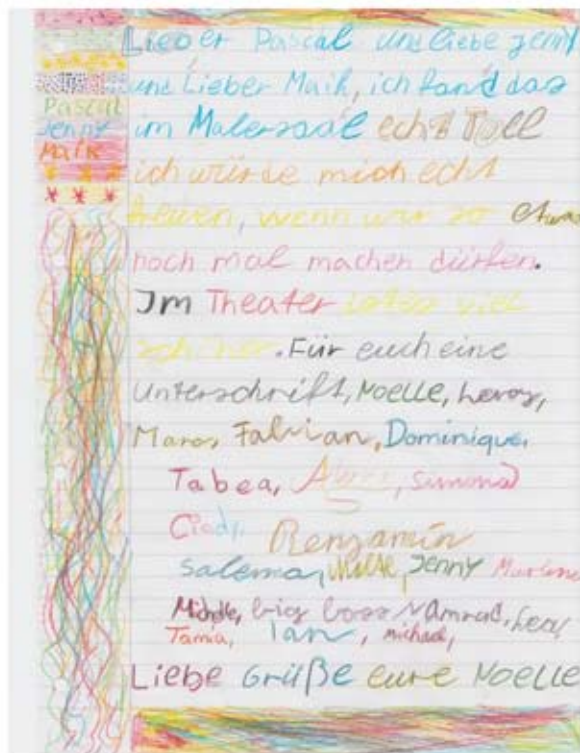 Pascal
Jenny
Maik
Lieber Pascal und liebe Jenny
und Lieber Maik, ich fand das
im Malersaal echt Toll
ich würde mich echt
freuen, wenn wir so etwas
noch mal machen dürfen.
Im Theater viel
schöner. Für euch eine
Unterschrift, Noelle, Leroy,
Maros, Fabian, Dominique,
Tabea, Simona
Cindy, Benjamin
Salema, Malte, Jenny Marlene
Michelle, big boss Namrad,
Tamia, Ian, michael,
Liebe Grüße eure Noelle